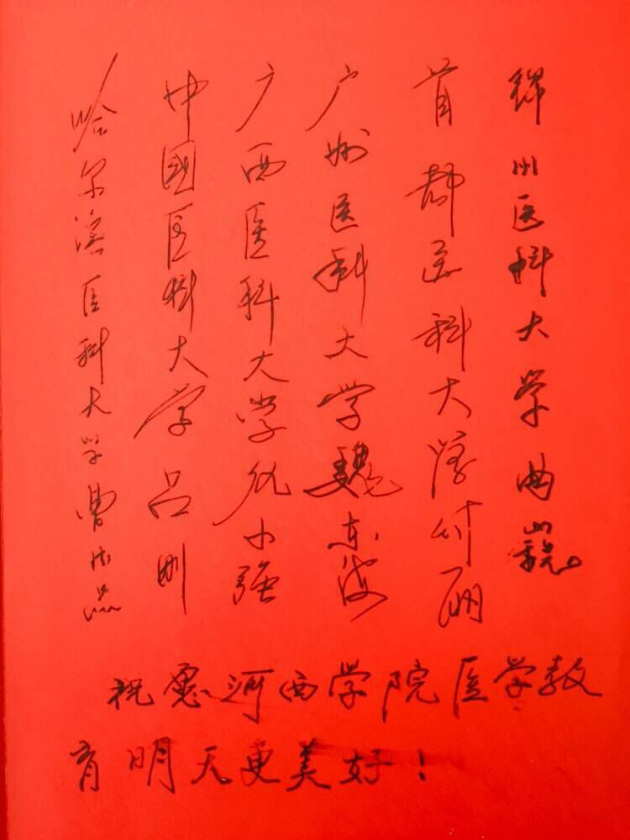 锦州医科大学曲巍
首都医科大学付丽
广州医科大学魏东海
广西医科大学仇小强
中國医科大学吕刚
哈尔滨医科大学曹德品
祝愿河西学院医学教
育明天更美好！